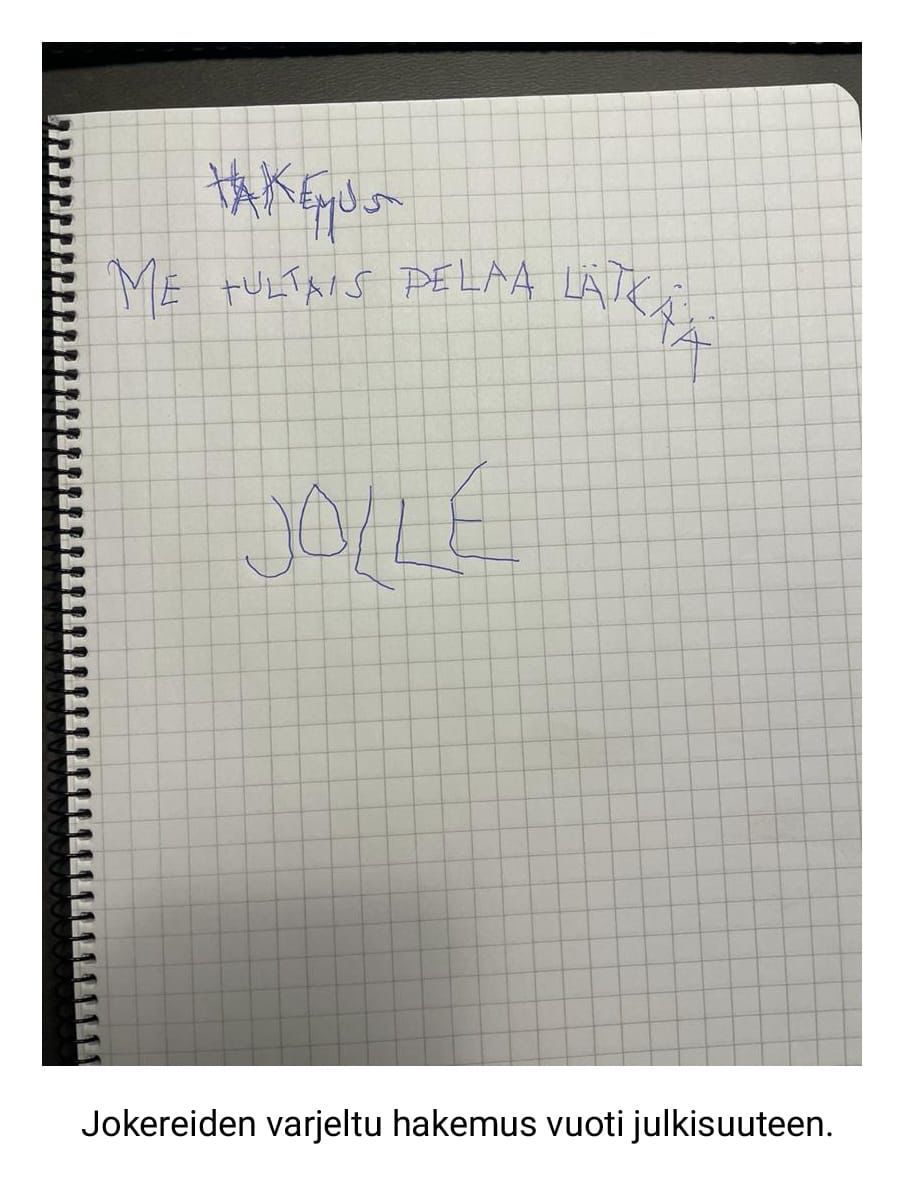 HAKEMUS
ME TULTAIS PELAA LÄTKÄÄ
JOLLE
Jokereiden varjeltu hakemus vuoti julkisuuteen.